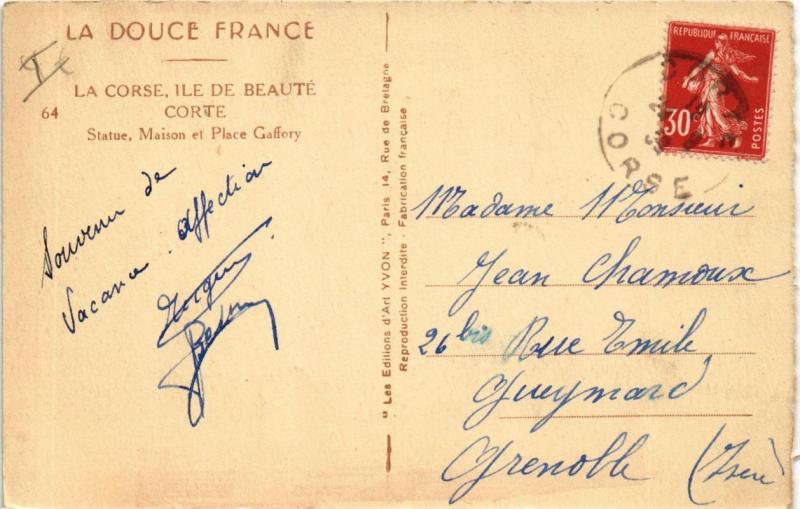 LA DOUCE FRANCE
LA CORSE, ILE DE BEAUTÉ
64
CORTE
Statue, Maison et Place Gaffory
Souvenir de
Vacance. Affection
"Les Editions d'Art YVON", Paris 14, Rue de Bretagne
Reproduction Interdite - Fabrication française
REPUBLIQUE FRANÇAISE
30
POSTES
CORSE
Madame Monsieur
Jean Chamoux
26 bis Rue Emile
Gueymard
Grenoble (Isère)